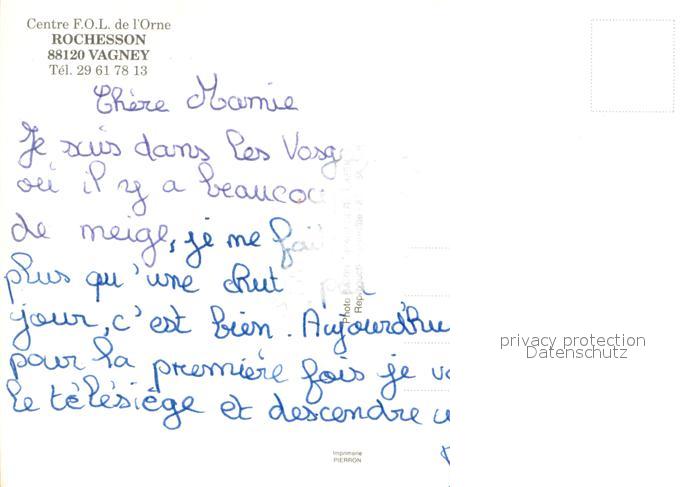 Centre F.O.L. de l'Orne
ROCHESSON
88120 VAGNEY
Tél. 29 61 78 13
Chère Mamie
Je suis dans les Vosg
où il y a beaucou
de neige, je me fai
plus qu'une chut
jour, c'est bien. Aujourd'hu
pour la première fois je v
le télésiège et descendre u
privacy protection
Datenschutz
Imprimerie
PIERRON